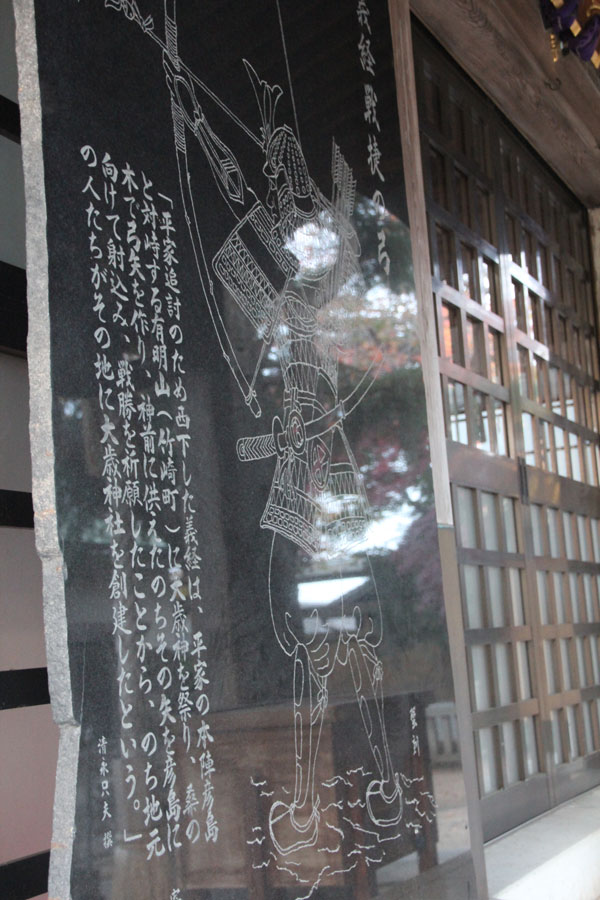 義経戦捷の弓
「平家追討のため西下した義経は、平家の本陣彦島
と対峙する有明山(竹崎町)に大歳神を祭り、桑の
木で弓矢を作り、神前に供えたのちその矢を彦島に
向けて射込み、戦勝を祈願したことから、のち地元
の人たちがその地に大歳神社を創建したという。」
清永只夫 撰